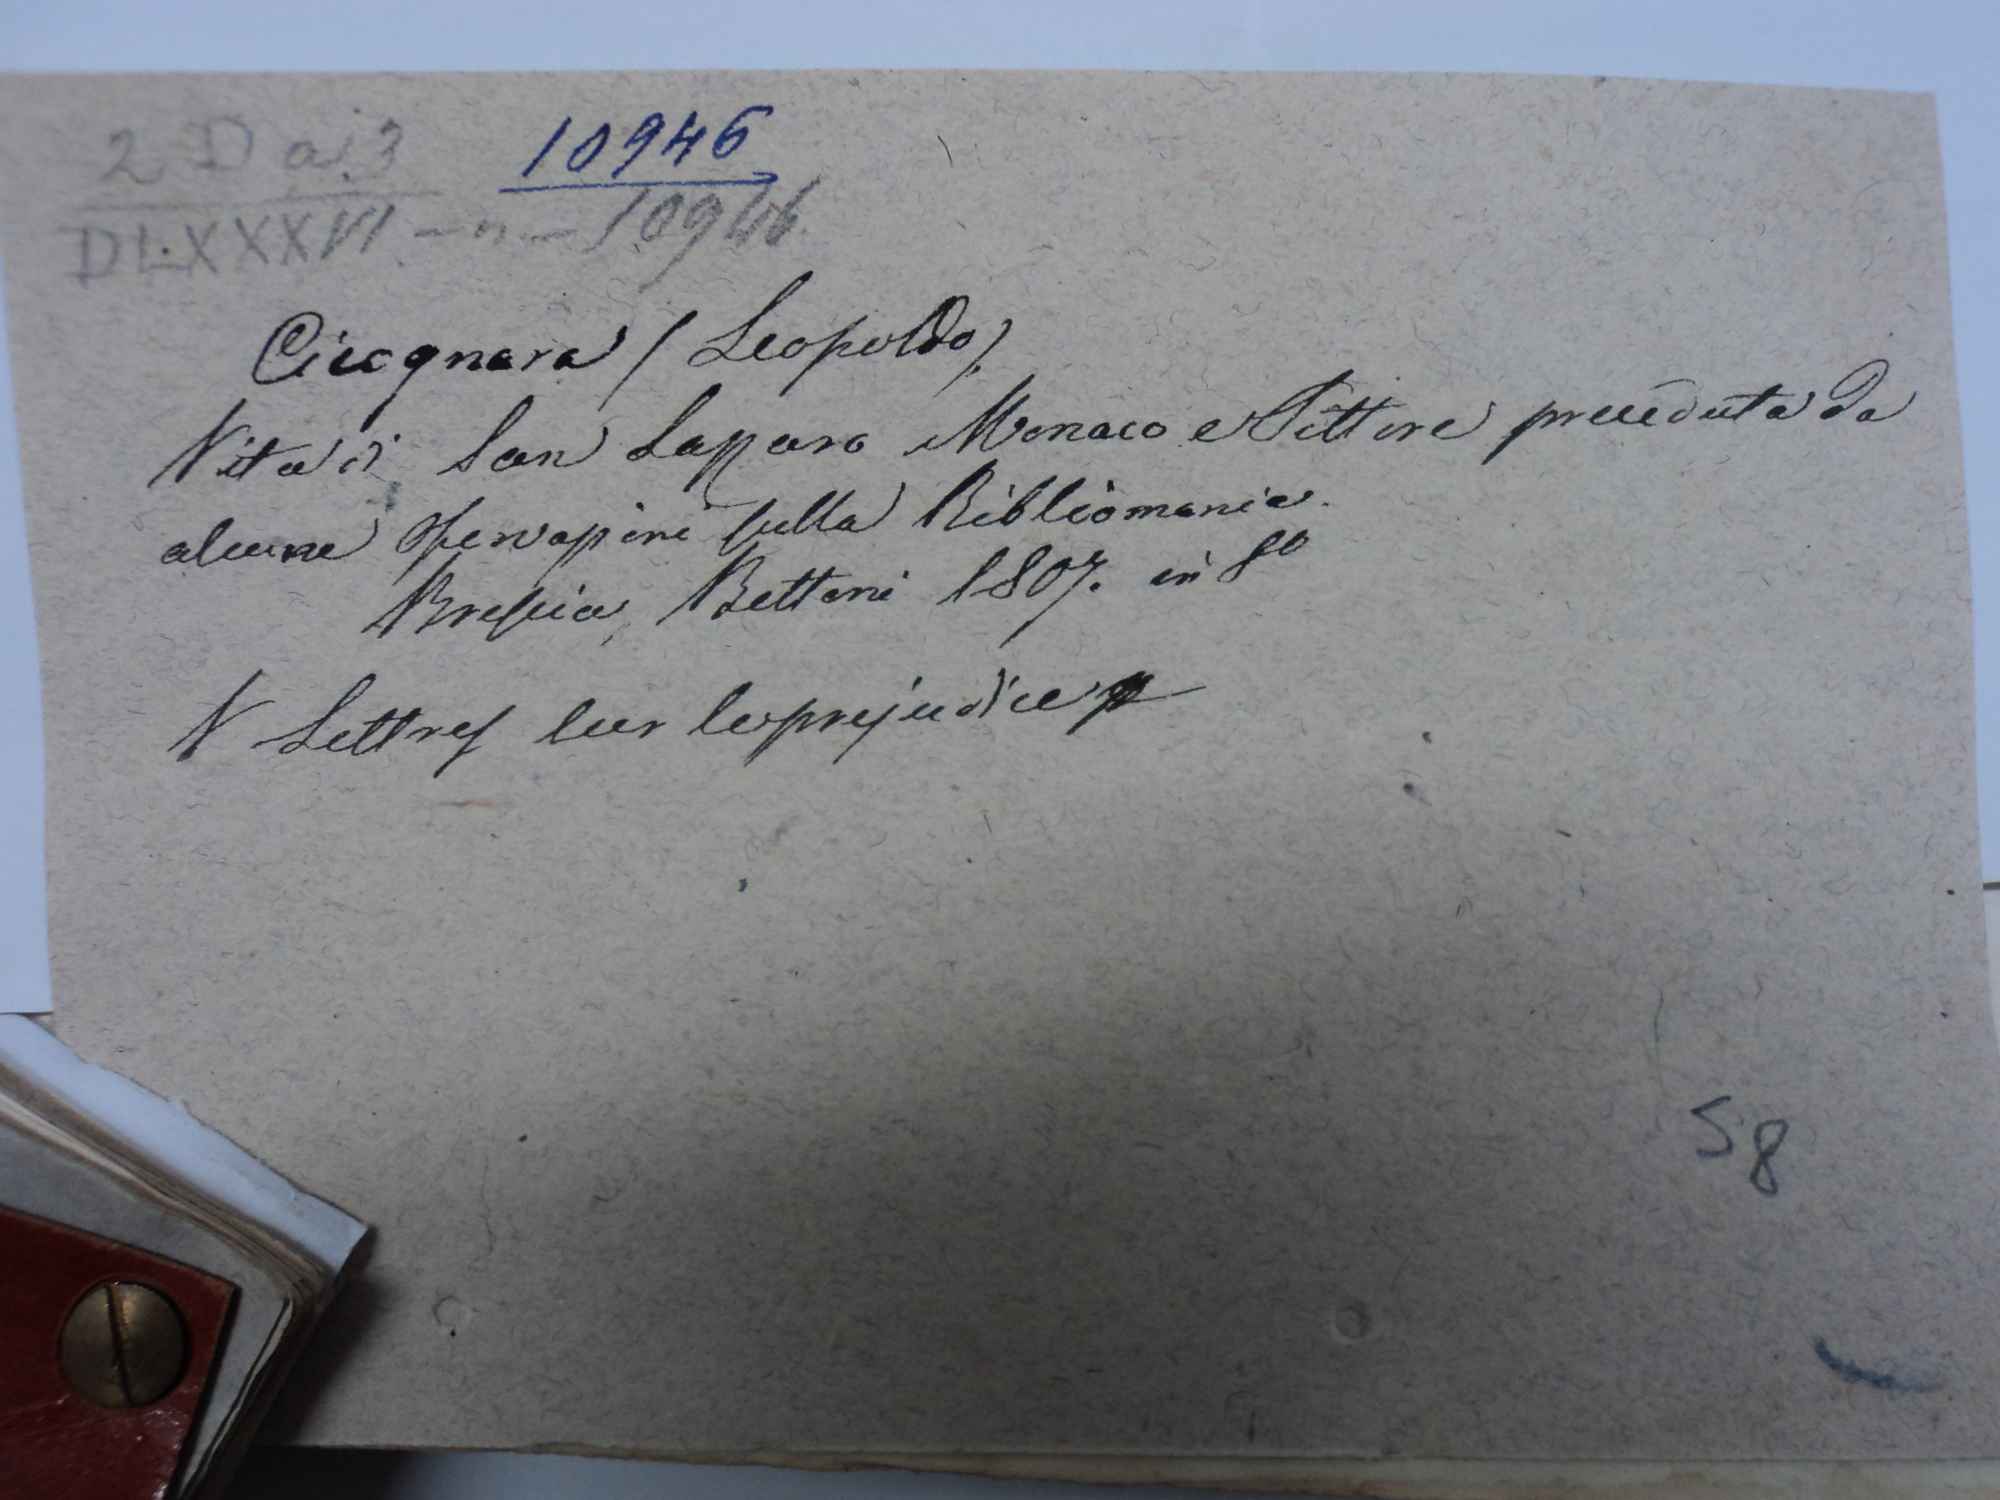 2 D a. 3
10946
DLXXXVI - n - 10946
Cicognara (Leopoldo)
Vita di San Lazzaro Monaco e Pittore preceduta da
alcune osservazioni sulla Bibliomania.
Brescia, Bettoni 1807. in 8º
V Lettres sur les prejudices
58